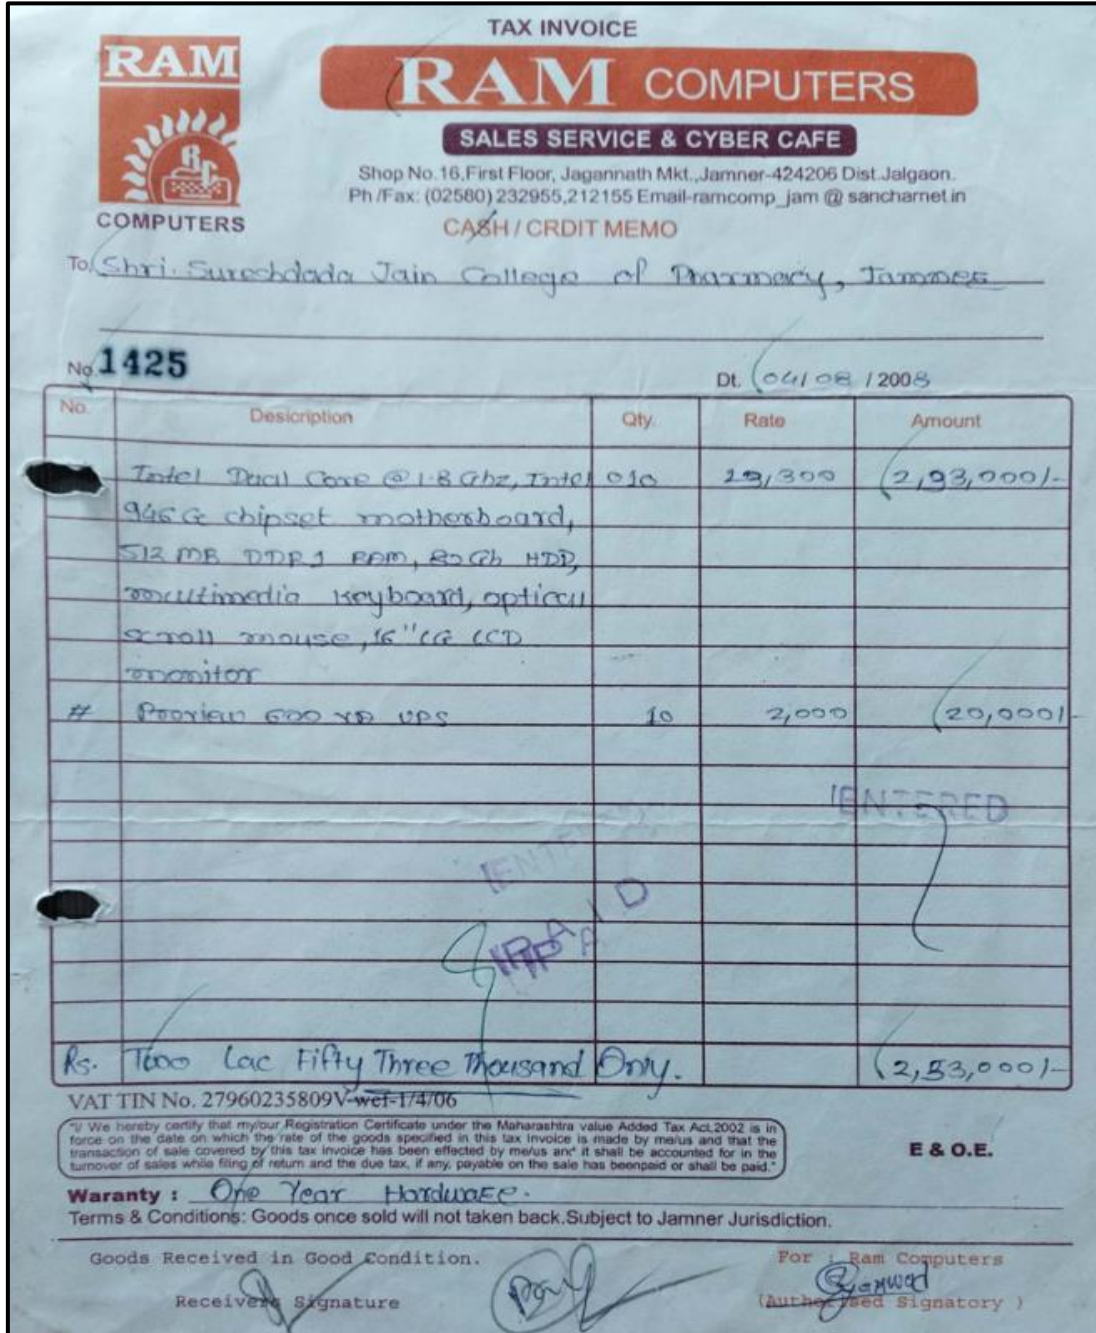 TAX INVOICE
RAM
RAM COMPUTERS
SALES SERVICE & CYBER CAFE
Shop No.16,First Floor, Jagannath Mkt.,Jamner-424206 Dist.Jalgaon.
Ph /Fax: (02580) 232955,212155 Email-ramcomp_jam @ sancharnet.in
COMPUTERS
CASH / CRDIT MEMO
To, Shri. Sureshdada Jain College of Pharmacy, Jamner
No. 1425
Dt. 04/08/2008
No. Desicription Qty. Rate Amount
Intel Dual Core @ 1.8 Ghz, Intel 010 29,300 2,93,000/-
946 G chipset motherboard,
512 MB DDR RAM, 80 Gb HDD,
multimedia keyboard, optical
scroll mouse, 16" LCD
monitor
# 600 VA UPS 10 2,000 20,000/-
ENTERED
PAID
Rs. Two Lac Fifty Three Thousand Only. 2,53,000/-
VAT TIN No. 27960235809V-wef-1/4/06
"I/ We hereby certify that my/our Registration Certificate under the Maharashtra value Added Tax Act,2002 is in
force on the date on which the rate of the goods specified in this tax invoice is made by me/us and that the
transaction of sale covered by this tax invoice has been effected by me/us and it shall be accounted for in the
turnover of sales while filing of return and the due tax, if any, payable on the sale has beenpaid or shall be paid."
E & O.E.
Waranty : One Year Hardware.
Terms & Conditions: Goods once sold will not taken back.Subject to Jamner Jurisdiction.
Goods Received in Good Condition. For : Ram Computers
Receivers Signature (Authorised Signatory )